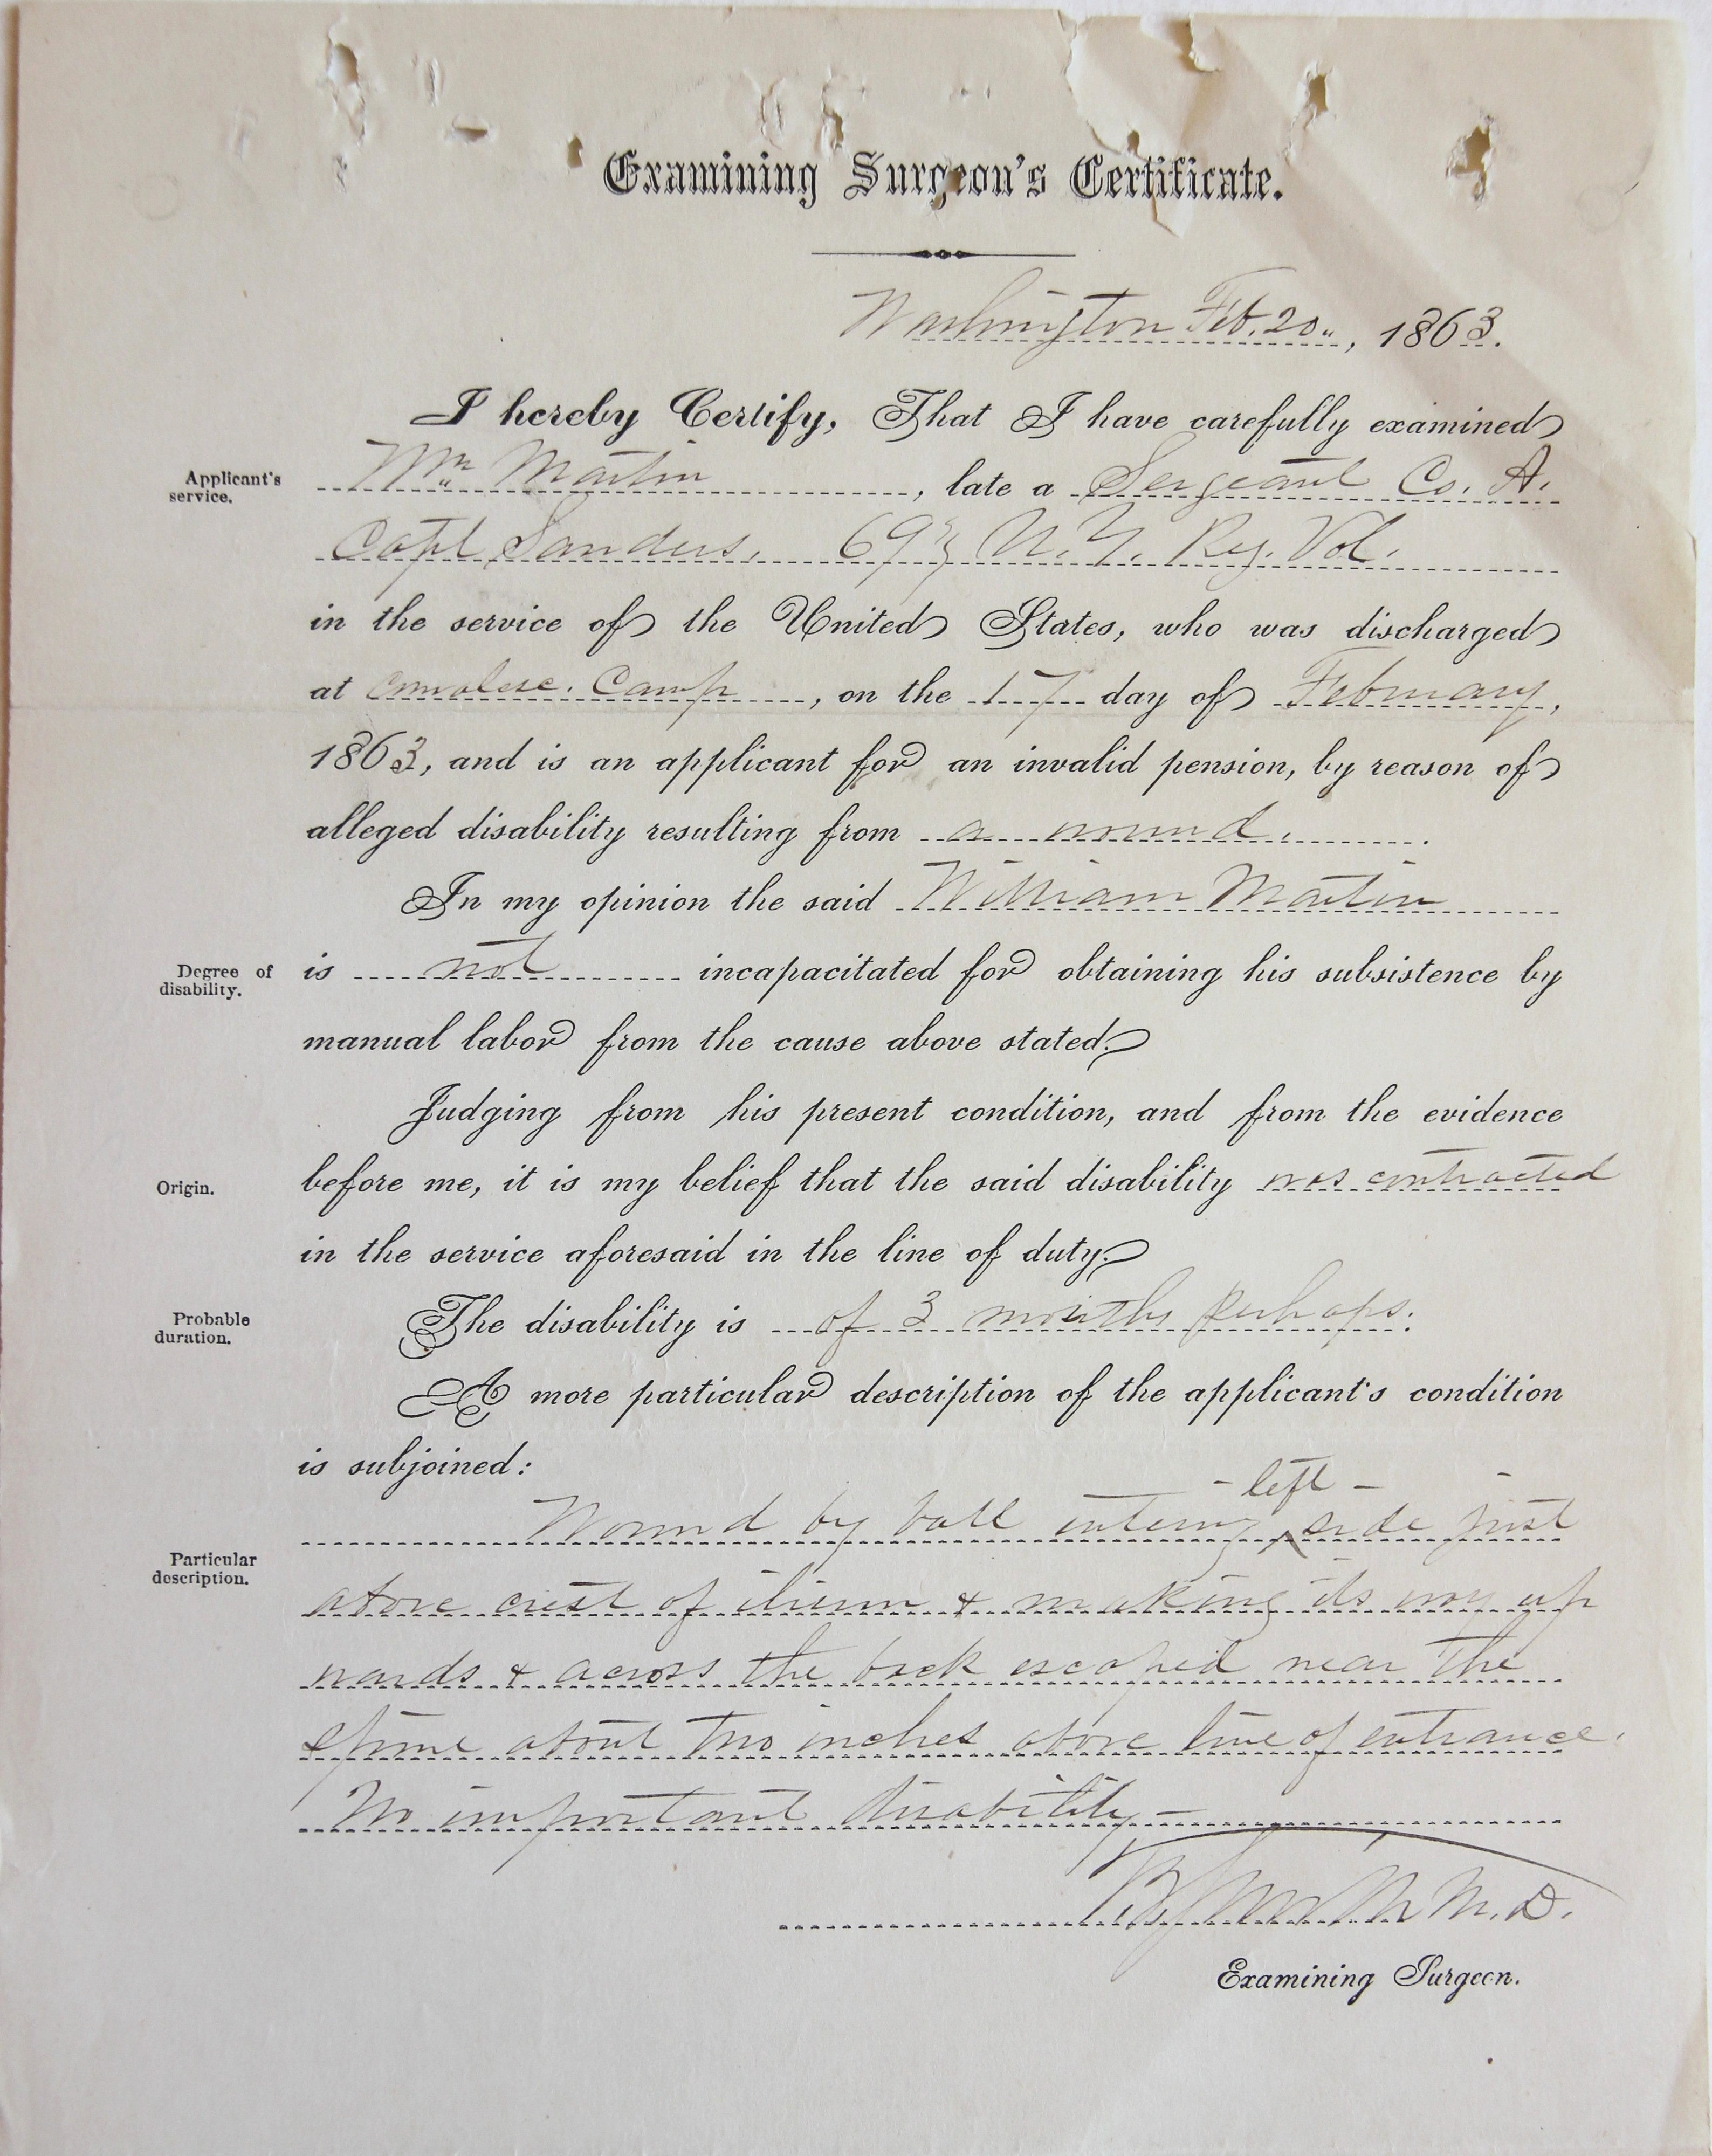 Examining Surgeon's Certificate.
Washington Feb. 20", 1863.
I hereby Certify, That I have carefully examined
Applicant's service.
Wm Martin, late a Sergeant Co. A.
Capt Sanders. 69 N.Y. Reg. Vol.
in the service of the United States, who was discharged
at convalesc. Camp, on the 17 day of February,
1863, and is an applicant for an invalid pension, by reason of
alleged disability resulting from a wound.
In my opinion the said William Martin
Degree of disability.
is not incapacitated for obtaining his subsistence by
manual labor from the cause above stated.
Judging from his present condition, and from the evidence
Origin.
before me, it is my belief that the said disability was contracted
in the service aforesaid in the line of duty.
Probable duration.
The disability is of 3 months perhaps.
A more particular description of the applicant's condition
is subjoined:
- left -
Wound by ball entering ‸ side just
Particular description.
above crest of ilium & making its way up
wards & across the back escaped near the
spine about two inches above line of entrance.
No important disability —
M.D.
Examining Surgeon.